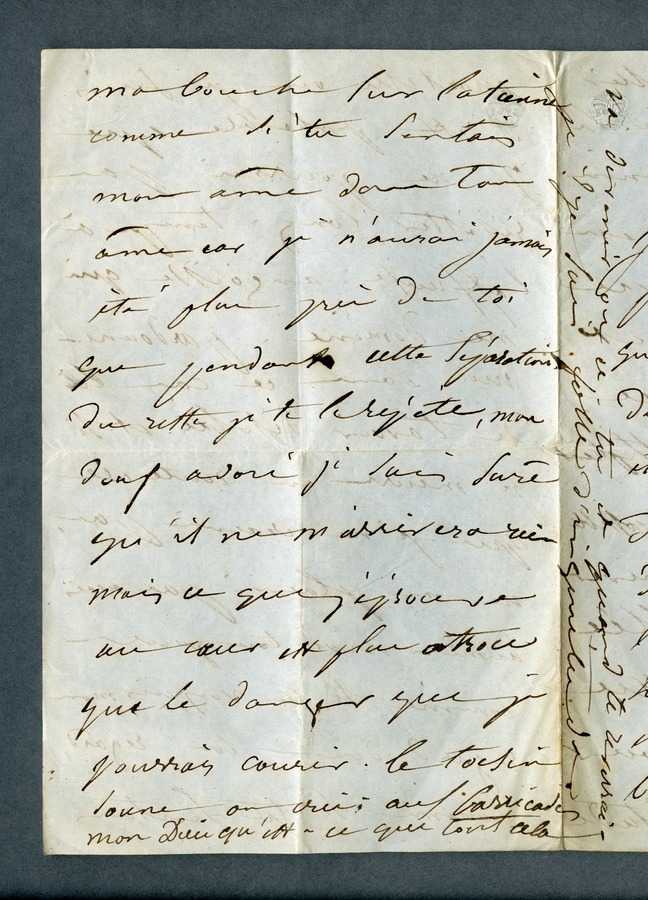 ma bouche sur la tienne
comme si tu sentais
mon âme dans ton
âme car je n'aurai jamais
été plus près de toi
que pendant cette séparation
Du reste je te le rejete, mon
doux adoré je suis sure
qu'il ne m'arrivera rien
mais ce que j'éprouve
au cœur est plus atroce
que le danger que je
pourrais courir. le tocsin
sonne on crie aux barricades
mon Dieu qu'est-ce que tout cela
va devenir où es tu et quand te reverrai-
je je suis folle d'inquiétude